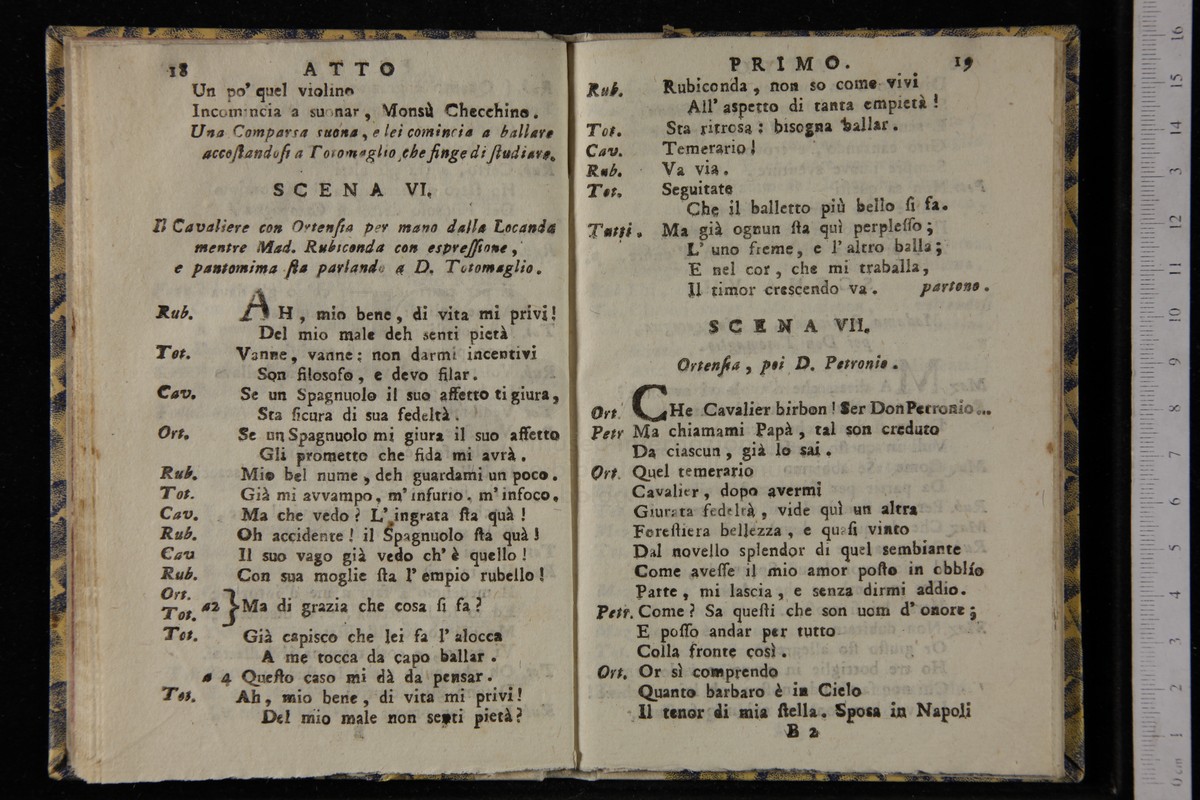 18 ATTO
Un po' quel violino
Incomincia a suonar, Monsù Checchino.
Una Comparsa suona, e lei comincia a ballare
accoſtandoſi a Totomaglio che finge di ſtudiare.
SCENA VI.
Il Cavaliere con Ortenſia per mano dalla Locanda
mentre Mad. Rubiconda con espreſſione,
e pantomima ſta parlando a D. Totomaglio.
Rub. AH, mio bene, di vita mi privi!
Del mio male deh senti pietà
Tot. Vanne, vanne: non darmi incentivi
Son filosofo, e devo filar.
Cav. Se un Spagnuolo il suo affetto ti giura,
Sta ſicura di sua fedeltà.
Ort. Se un Spagnuolo mi giura il suo affetto
Gli prometto che fida mi avrà.
Rub. Mio bel nume, deh guardami un poco.
Tot. Già mi avvampo, m'infurio, m'infoco.
Cav. Ma che vedo? L'ingrata ſta quà!
Rub. Oh accidente! il Spagnuolo ſta quà!
Cav Il suo vago già vedo ch'è quello!
Rub. Con sua moglie ſta l'empio rubello!
Ort.
Tot. a2 } Ma di grazia che cosa ſi fa?
Tot. Già capisco che lei fa l'alocca
A me tocca da capo ballar.
a 4 Queſto caso mi dà da pensar.
Tot. Ah, mio bene, di vita mi privi!
Del mio male non senti pietà?
PRIMO. 19
Rub. Rubiconda, non so come vivi
All'aspetto di tanta empietà!
Tot. Sta ritrosa: bisogna ballar.
Cav. Temerario!
Rub. Va via.
Tot. Seguitate
Che il balletto più bello ſi fa.
Tutti. Ma già ognun ſta quì perpleſſo;
L'uno freme, e l'altro balla;
E nel cor, che mi traballa,
Il timor crescendo va. partono.
SCENA VII.
Ortenſia, poi D. Petronio.
Ort. CHe Cavalier birbon! Ser Don Petronio...
Petr Ma chiamami Papà, tal son creduto
Da ciascun, già lo sai.
Ort. Quel temerario
Cavalier, dopo avermi
Giurata fedeltà, vide quì un altra
Foreſtiera bellezza, e quaſi vinto
Dal novello splendor di quel sembiante
Come aveſſe il mio amor poſto in obblío
Parte, mi lascia, e senza dirmi addio.
Petr. Come? Sa queſti che son uom d'onore;
E poſſo andar per tutto
Colla fronte così.
Ort. Or sì comprendo
Quanto barbaro è in Cielo
Il tenor di mia ſtella. Sposa in Napoli
B 2